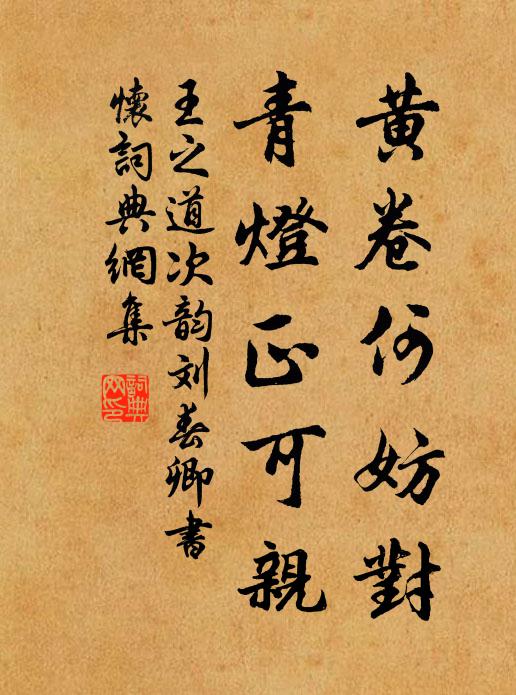 黄卷何妨對
青燈正可親
王之道次韵刘春卿書
懷詞典網集
詞典
网印